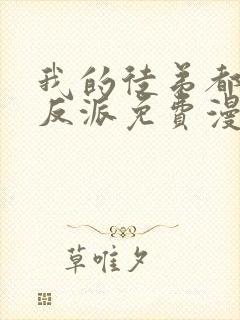 我的徒弟都
反派免費漫
草唯夕